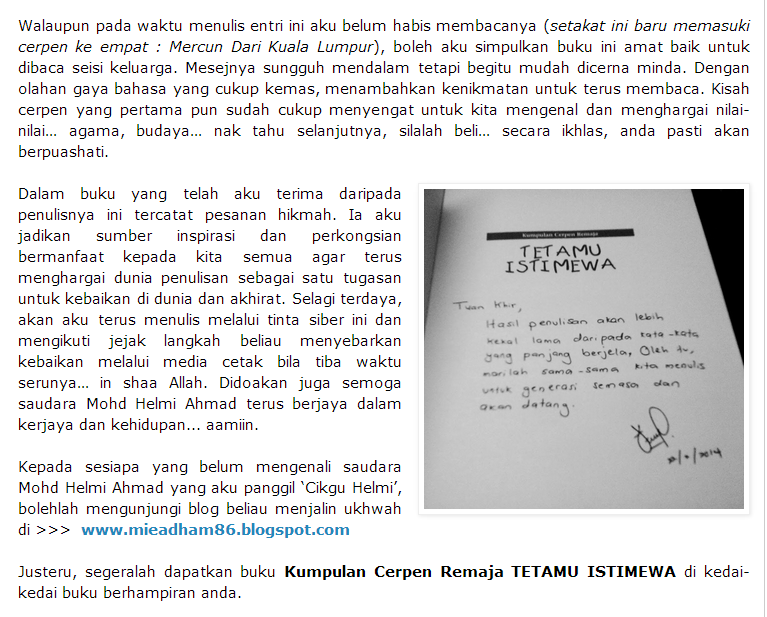 Walaupun pada waktu menulis entri ini aku belum habis membacanya (setakat ini baru memasuki
cerpen ke empat : Mercun Dari Kuala Lumpur), boleh aku simpulkan buku ini amat baik untuk
dibaca seisi keluarga. Mesejnya sungguh mendalam tetapi begitu mudah dicerna minda. Dengan
olahan gaya bahasa yang cukup kemas, menambahkan kenikmatan untuk terus membaca. Kisah
cerpen yang pertama pun sudah cukup menyengat untuk kita mengenal dan menghargai nilai-
nilai... agama, budaya... nak tahu selanjutnya, silalah beli... secara ikhlas, anda pasti akan
berpuashati.
Dalam buku yang telah aku terima daripada
penulisnya ini tercatat pesanan hikmah. Ia aku
jadikan sumber inspirasi dan perkongsian
bermanfaat kepada kita semua agar terus
menghargai dunia penulisan sebagai satu tugasan
untuk kebaikan di dunia dan akhirat. Selagi terdaya,
akan aku terus menulis melalui tinta siber ini dan
mengikuti jejak langkah beliau menyebarkan
kebaikan melalui media cetak bila tiba waktu
serunya... in shaa Allah. Didoakan juga semoga
saudara Mohd Helmi Ahmad terus berjaya dalam
kerjaya dan kehidupan... aamiin.
Kumpulan Cerpen Remaja
TETAMU
ISTIMEWA
Tuan Khir,
Hasil penulisan akan lebih
kekal lama daripada kata-kata
yang panjang berjela, Oleh tu,
marilah sama-sama kita menulis
untuk generasi semasa dan
akan datang.
Kepada sesiapa yang belum mengenali saudara
Mohd Helmi Ahmad yang aku panggil ‘Cikgu Helmi’,
bolehlah mengunjungi blog beliau menjalin ukhwah
di >>> www.mieadham86.blogspot.com
Justeru, segeralah dapatkan buku Kumpulan Cerpen Remaja TETAMU ISTIMEWA di kedai-
kedai buku berhampiran anda.